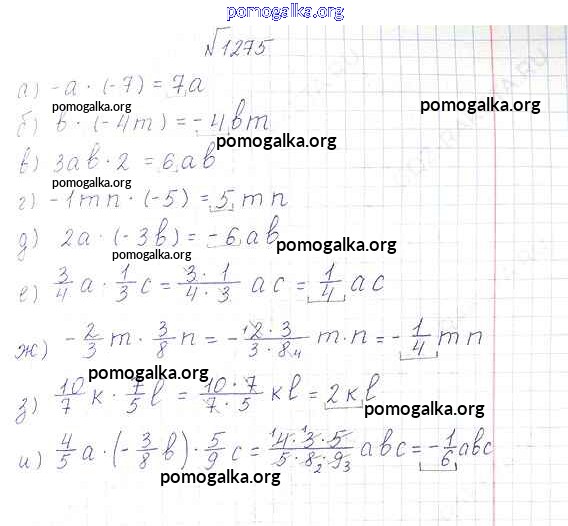 pomogalka.org
№1275
а) -a · (-7) = 7a
pomogalka.org
pomogalka.org
б) b · (-4m) = -4bm
pomogalka.org
в) 3ab · 2 = 6ab
pomogalka.org
г) -1mn · (-5) = 5mn
д) 2a · (-3b) = -6ab
pomogalka.org
pomogalka.org
е) 3/4 a · 1/3 c = 3·1/4·3 ac = 1/4 ac
ж) -2/3 m · 3/8 n = -2·3/3·8 4 m·n = -1/4 mn
pomogalka.org
з) 10/7 к · 7/5 l = 10·7/7·5 кl = 2кl
pomogalka.org
и) 4/5 a · (-3/8 b) · 5/9 c = 1 4·1 3·5/5·8 2·9 3 abc = -1/6 abc
pomogalka.org